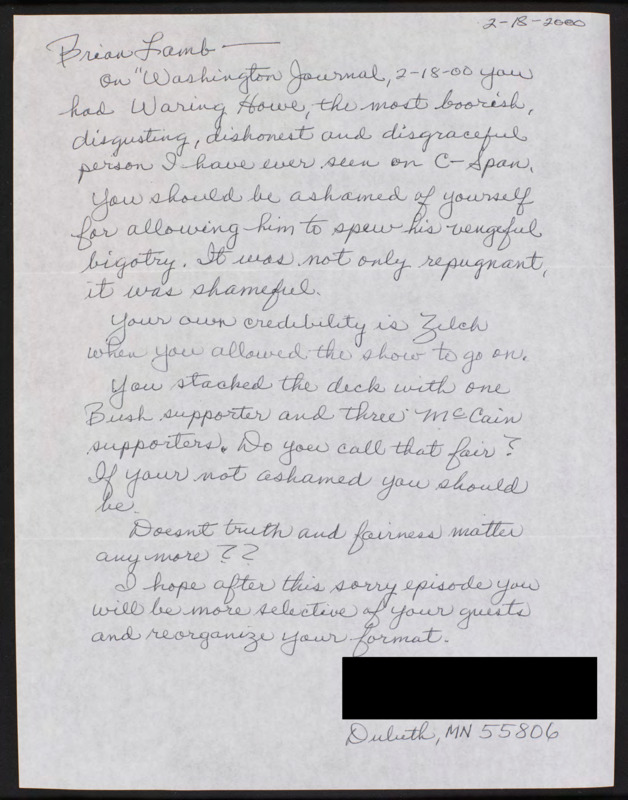 2-18-2000
Brian Lamb —
On "Washington Journal, 2-18-00 you
had Waring Howe, the most boorish,
disgusting, dishonest and disgraceful
person I have ever seen on C-Span.
You should be ashamed of yourself
for allowing him to spew his vengeful
bigotry. It was not only repugnant,
it was shameful.
Your own credibility is Zilch
when you allowed the show to go on.
You stacked the deck with one
Bush supporter and three McCain
supporters. Do you call that fair?
If your not ashamed you should
be.
Doesnt truth and fairness matter
any more??
I hope after this sorry episode you
will be more selective of your guests
and reorganize your format.
Duluth, MN 55806